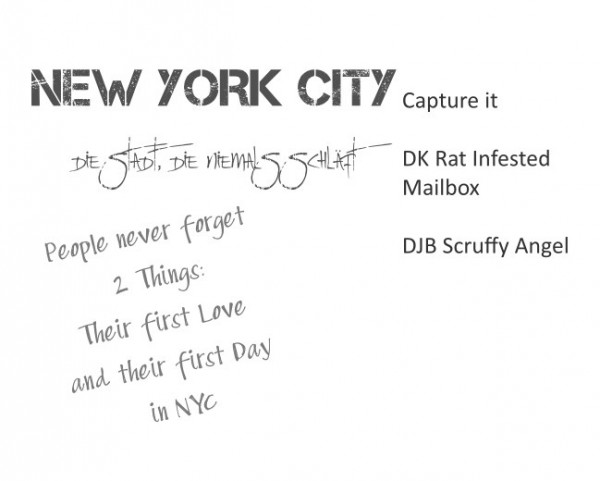 NEW YORK CITY
Capture it
DIE STADT, DIE NIEMALS SCHLÄFT
DK Rat Infested
Mailbox
DJB Scruffy Angel
People never forget
2 Things:
Their first Love
and their first Day
in NYC